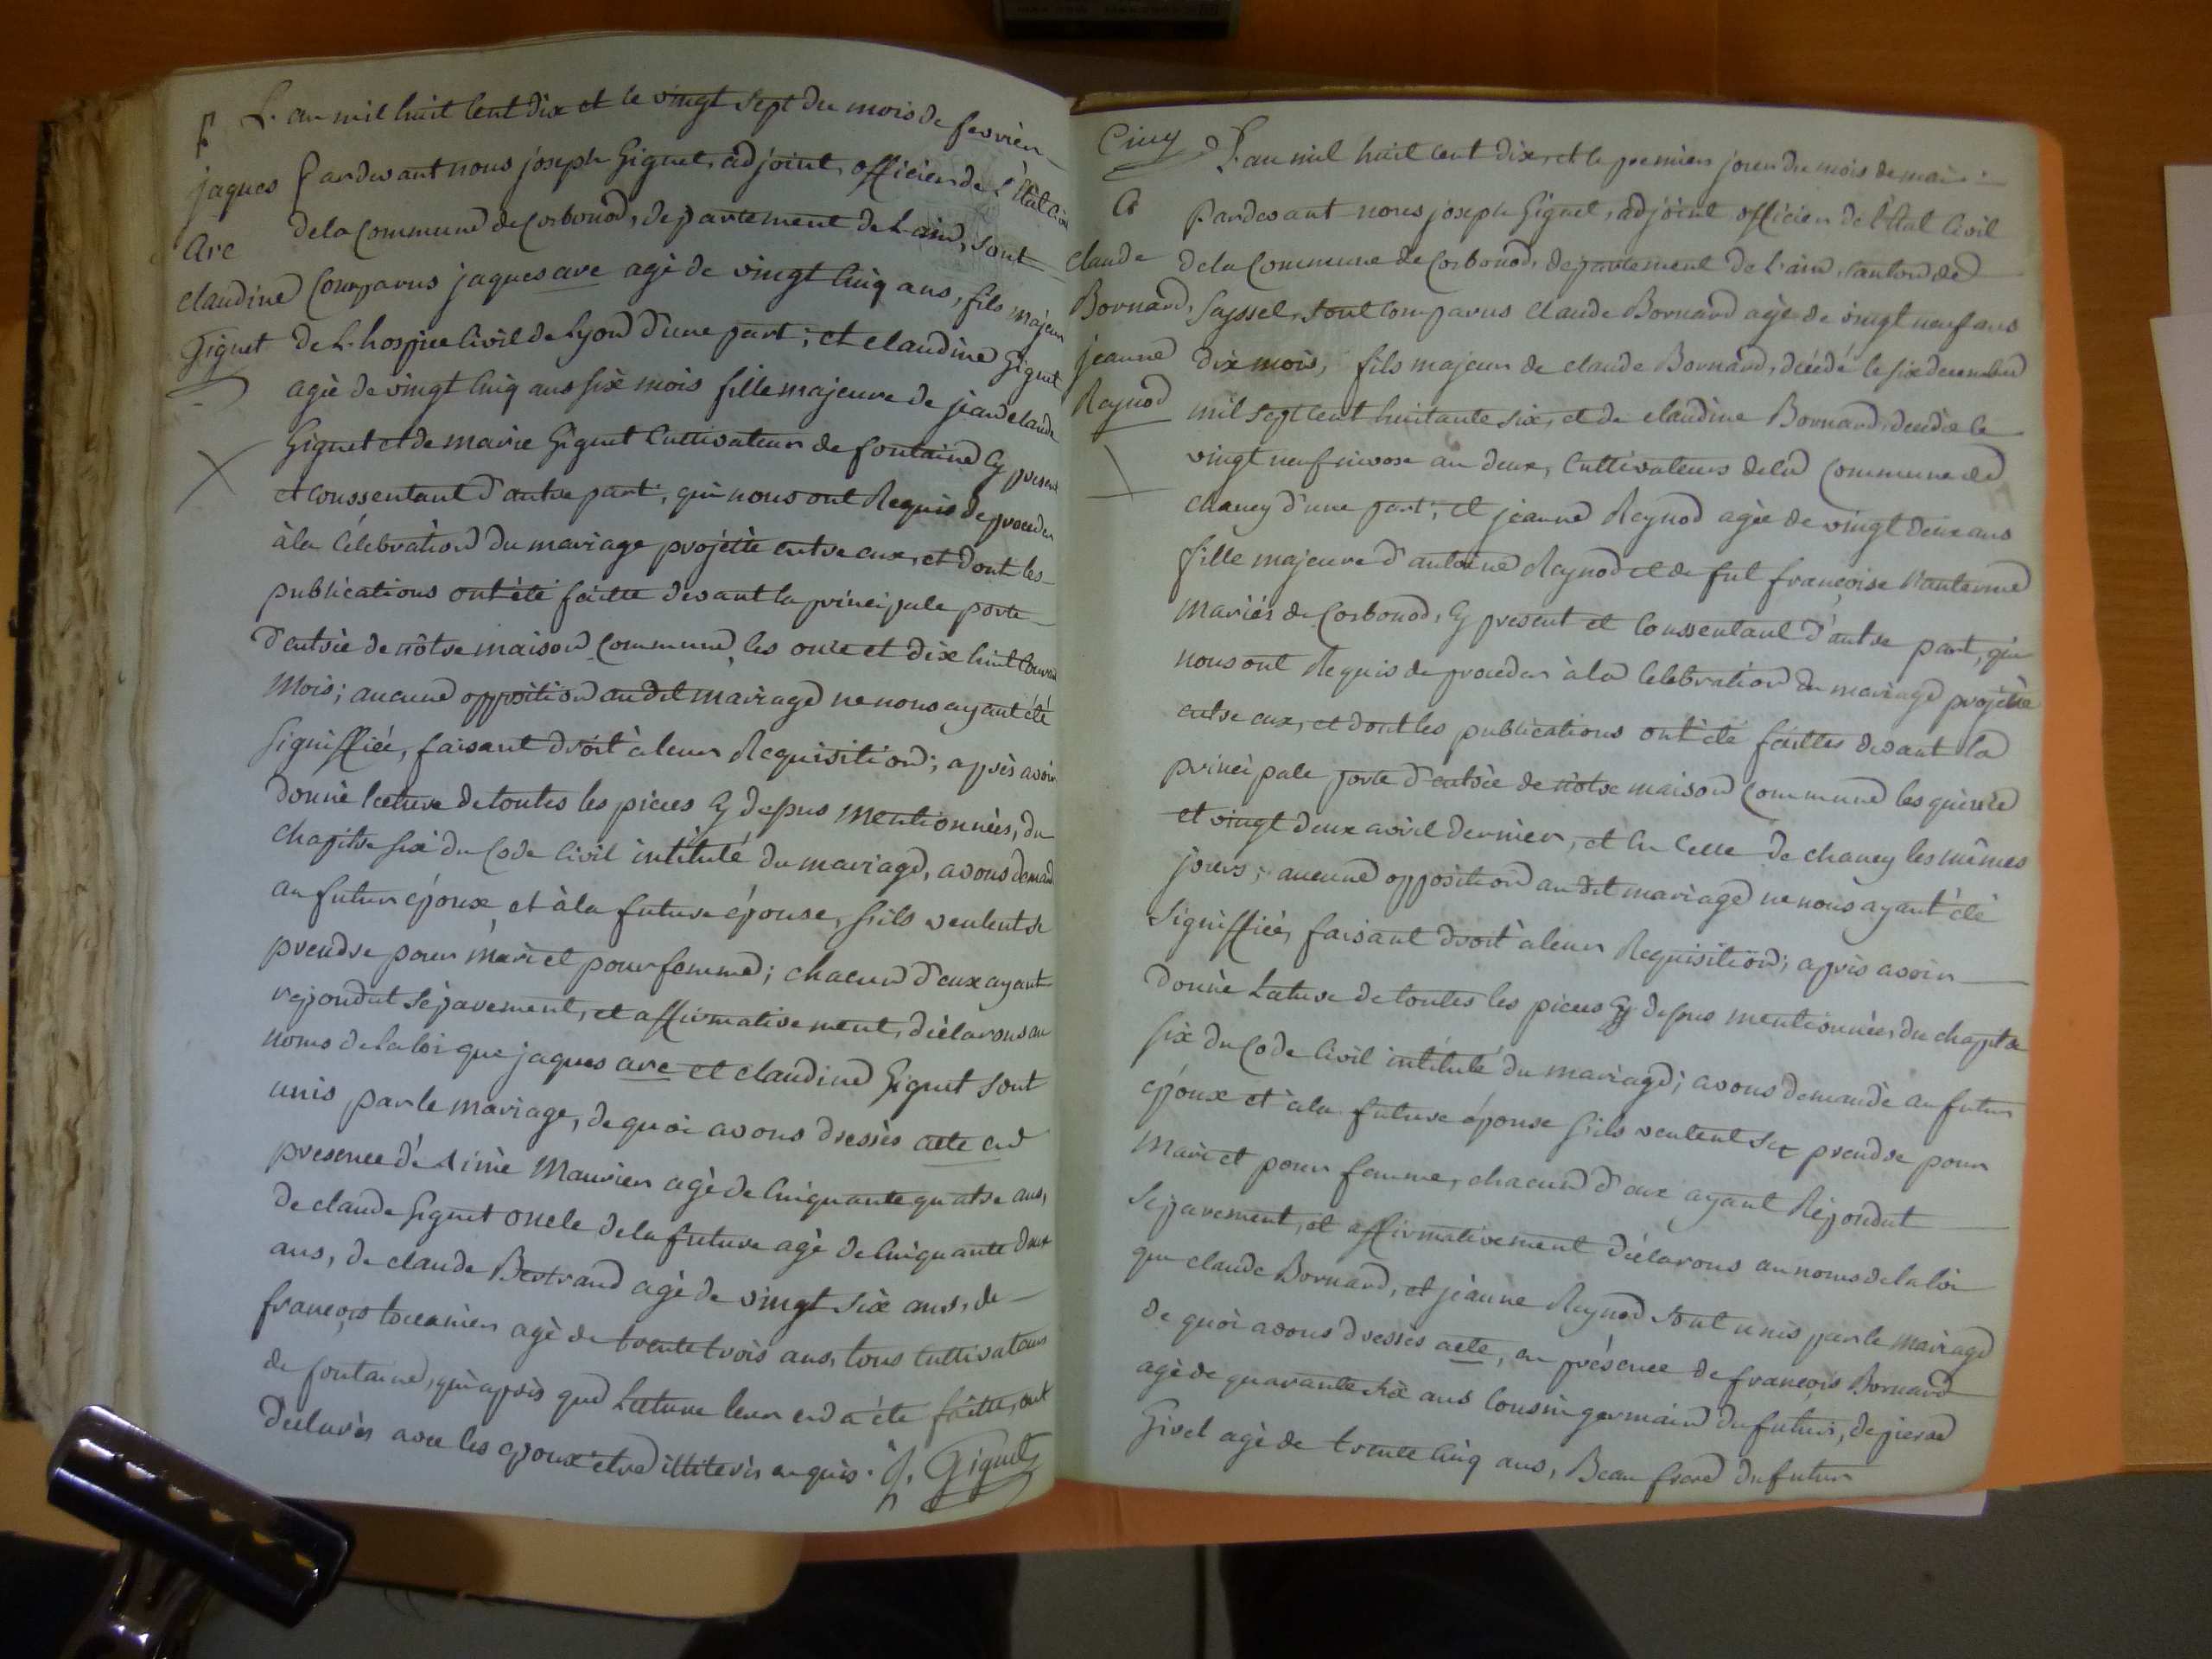 F
jaques
arc
claudine
Giguet
L'an mil huit Cent dix et le vingt sept du mois de fevrier
Pardevant nous joseph Giguet, adjoint, officier de L'Etat Civil
dela Commune de Corbonod, departement de L'ain, sont
Comparus jaques arc agé de vingt Cinq ans, fils majeur
de L'hospice Civil de Lyon d'une part; et claudine Giguet
agée de vingt Cinq ans six mois fille majeure de jean claude
Giguet et de marie Giguet Cultivateur de fontaine Cy present
et Conssentant d'autre part; qui nous ont Requis de proceder
à la Célébration du mariage projetté entre eux, et dont les
publications ont été faitte devant la principale porte
d'entrée de nôtre maison Commune, les onze et dix huit
Mois; aucune opposition au dit mariage ne nous ayant été
signiffiée, faisant droit à leur Requisition; après avoir
donné lecture de toutes les pieces Cy dessus mentionnées, du
chapitre six du Code Civil intitulé du mariage, avons demandé
au futur époux et à la future épouse, s'ils veulent se
prendre pour mari et pour femme; chacun d'eux ayant
repondut séparement, et affirmativement, déclarons au
noms de la loi que jaques arc et claudine Giguet sont
unis par le mariage, de quoi avons dressés acte en
presence d'Aimé Maurier agé de Cinquante quatre ans,
de claude Giguet oncle de la future agé de Cinquante deux
ans, de claude Bertrand agé de vingt six ans, de
françois agé de trente trois ans, tous Cultivateurs
de fontaine, qui après que Lecture leur en a été faitte, ont
déclarés avec les epoux etre illiterés enquis. J. Giguet
Cinq
C
claude
Bornard,
jeanne
Reynod
L'an mil huit cent dix, et le premier jour du mois de mai
Pardevant nous joseph Giguet, adjoint officier de l'Etat Civil
dela Commune de Corbonod, departement de L'ain, Canton de
Sayssel, sont Comparus claude Bornard agé de vingt neuf ans
dix mois, fils majeur de claude Bornard, décédé le six decembre
mil sept cent huitante six, et de claudine Bornard, décédée le
vingt neuf nivose an deux, Cultivateurs dela Commune de
chaney d'une part; et jeanne Reynod agée de vingt deux ans
fille majeure d'antoine Reynod et de fut françoise
Mariés de Corbonod, Cy present et Conssentant d'autre part, qui
nous ont Requis de proceder à la Celebration du mariage projetté
entre eux, et dont les publications ont été faittes devant la
principale porte d'entrée de nôtre maison Commune les quinze
et vingt deux avril dernier, et en Celle de chaney les mêmes
jours; aucune opposition au dit mariage ne nous ayant été
signiffiée, faisant droit à leur Requisition; après avoir
donné Lecture de toutes les pieces Cy dessus mentionnées, du chapitre
six du Code Civil intitulé du mariage; avons demandé au futur
époux et à la future épouse s'ils veulent se prendre pour
mari et pour femme, chacun d'eux ayant Répondut
séparement, et affirmativement déclarons au noms de la loi
que claude Bornard, et jeanne Reynod sont unis par le mariage
de quoi avons dressés acte, en présence de françois Bornard
agé de quarante six ans Cousin germain du futur, de pierre
Givel agé de trente Cinq ans, Beau frere du futur